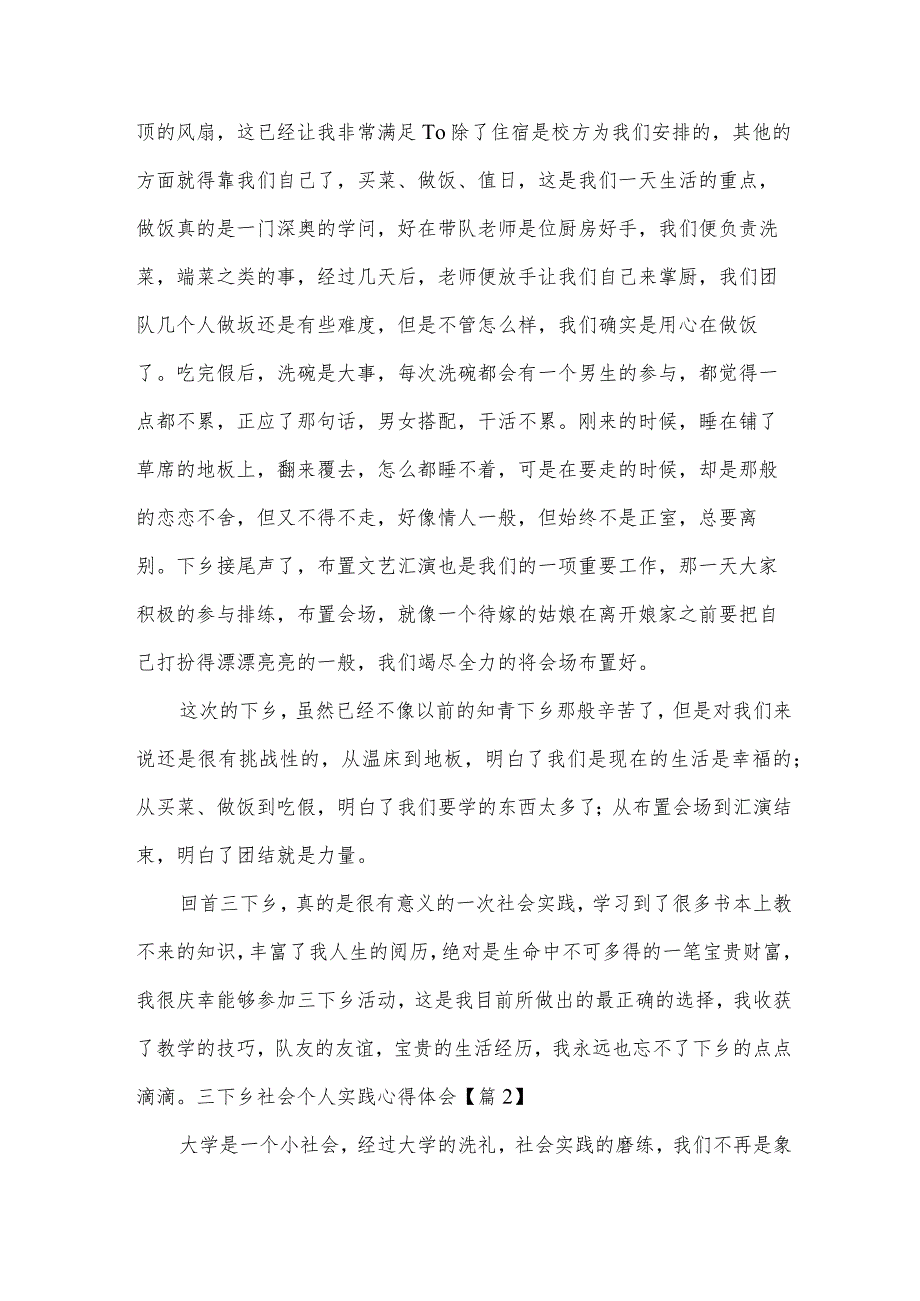 顶的风扇，这已经让我非常满足 To 除了住宿是校方为我们安排的，其他的
方面就得靠我们自己了，买菜、做饭、值日，这是我们一天生活的重点，
做饭真的是一门深奥的学问，好在带队老师是位厨房好手，我们便负责洗
菜，端菜之类的事，经过几天后，老师便放手让我们自己来掌厨，我们团
队几个人做坂还是有些难度，但是不管怎么样，我们确实是用心在做饭
了。吃完假后，洗碗是大事，每次洗碗都会有一个男生的参与，都觉得一
点都不累，正应了那句话，男女搭配，干活不累。刚来的时候，睡在铺了
草席的地板上，翻来覆去，怎么都睡不着，可是在要走的时候，却是那般
的恋恋不舍，但又不得不走，好像情人一般，但始终不是正室，总要离
别。下乡接尾声了，布置文艺汇演也是我们的一项重要工作，那一天大家
积极的参与排练，布置会场，就像一个待嫁的姑娘在离开娘家之前要把自
己打扮得漂漂亮亮的一般，我们竭尽全力的将会场布置好。
这次的下乡，虽然已经不像以前的知青下乡那般辛苦了，但是对我们来
说还是很有挑战性的，从温床到地板，明白了我们是现在的生活是幸福的；
从买菜、做饭到吃假，明白了我们要学的东西太多了；从布置会场到汇演结
束，明白了团结就是力量。
回首三下乡，真的是很有意义的一次社会实践，学习到了很多书本上教
不来的知识，丰富了我人生的阅历，绝对是生命中不可多得的一笔宝贵财富，
我很庆幸能够参加三下乡活动，这是我目前所做出的最正确的选择，我收获
了教学的技巧，队友的友谊，宝贵的生活经历，我永远也忘不了下乡的点点
滴滴。三下乡社会个人实践心得体会【篇 2】
大学是一个小社会，经过大学的洗礼，社会实践的磨练，我们不再是象